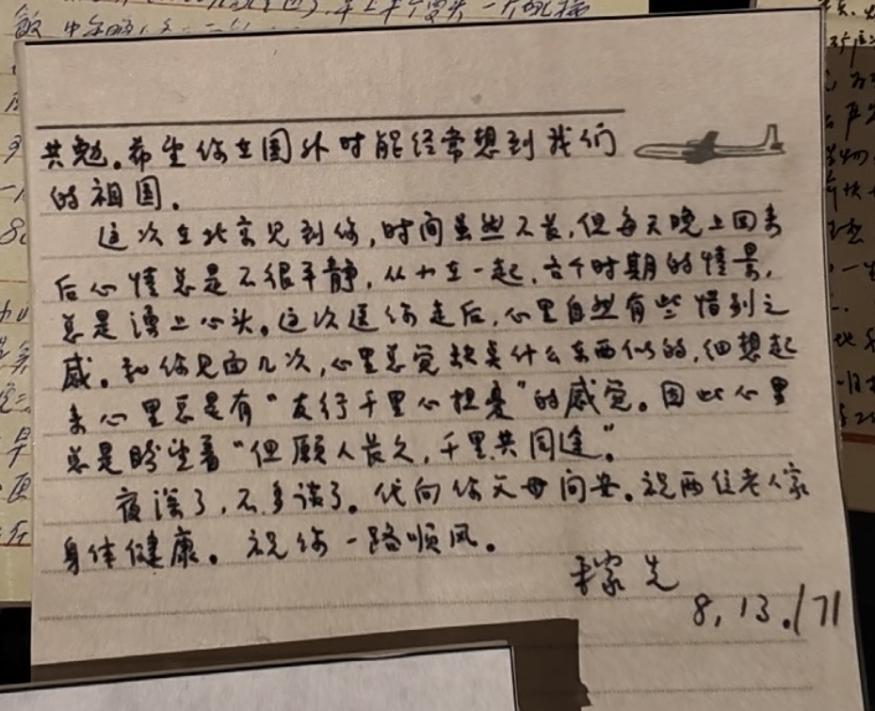 共勉。希望你在国外时能经常想到我们
的祖国。
这次在北京见到你，时间虽然不长，但每天晚上回来
后心情总是不很平静，从小在一起，各个时期的情景，
总是涌上心头。这次送你走后，心里自然有些惜别之
感。和你见面几次，心里总觉缺点什么东西似的，细想起
来心里总是有“友行千里心担忧”的感觉。因此心里
总是盼望着“但愿人长久，千里共同途”。
夜深了，不多谈了。代向你父母问安。祝两位老人家
身体健康。祝你一路顺风。
稼先
8.13./71